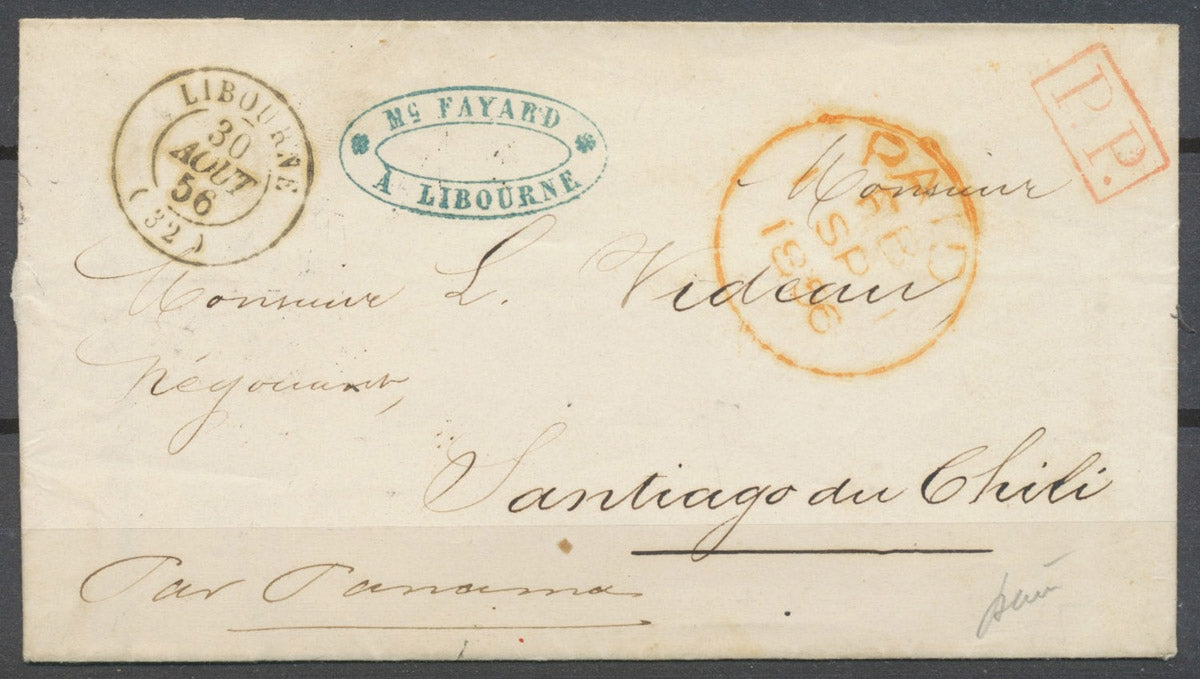 LIBOURNE
30
AOUT
56
(32)
Mc FAYARD
A LIBOURNE
PAID
SP
1856
P.P.
Monsieur
Monsieur L. Videau,
Négociant,
Santiago du Chili
Par Panama